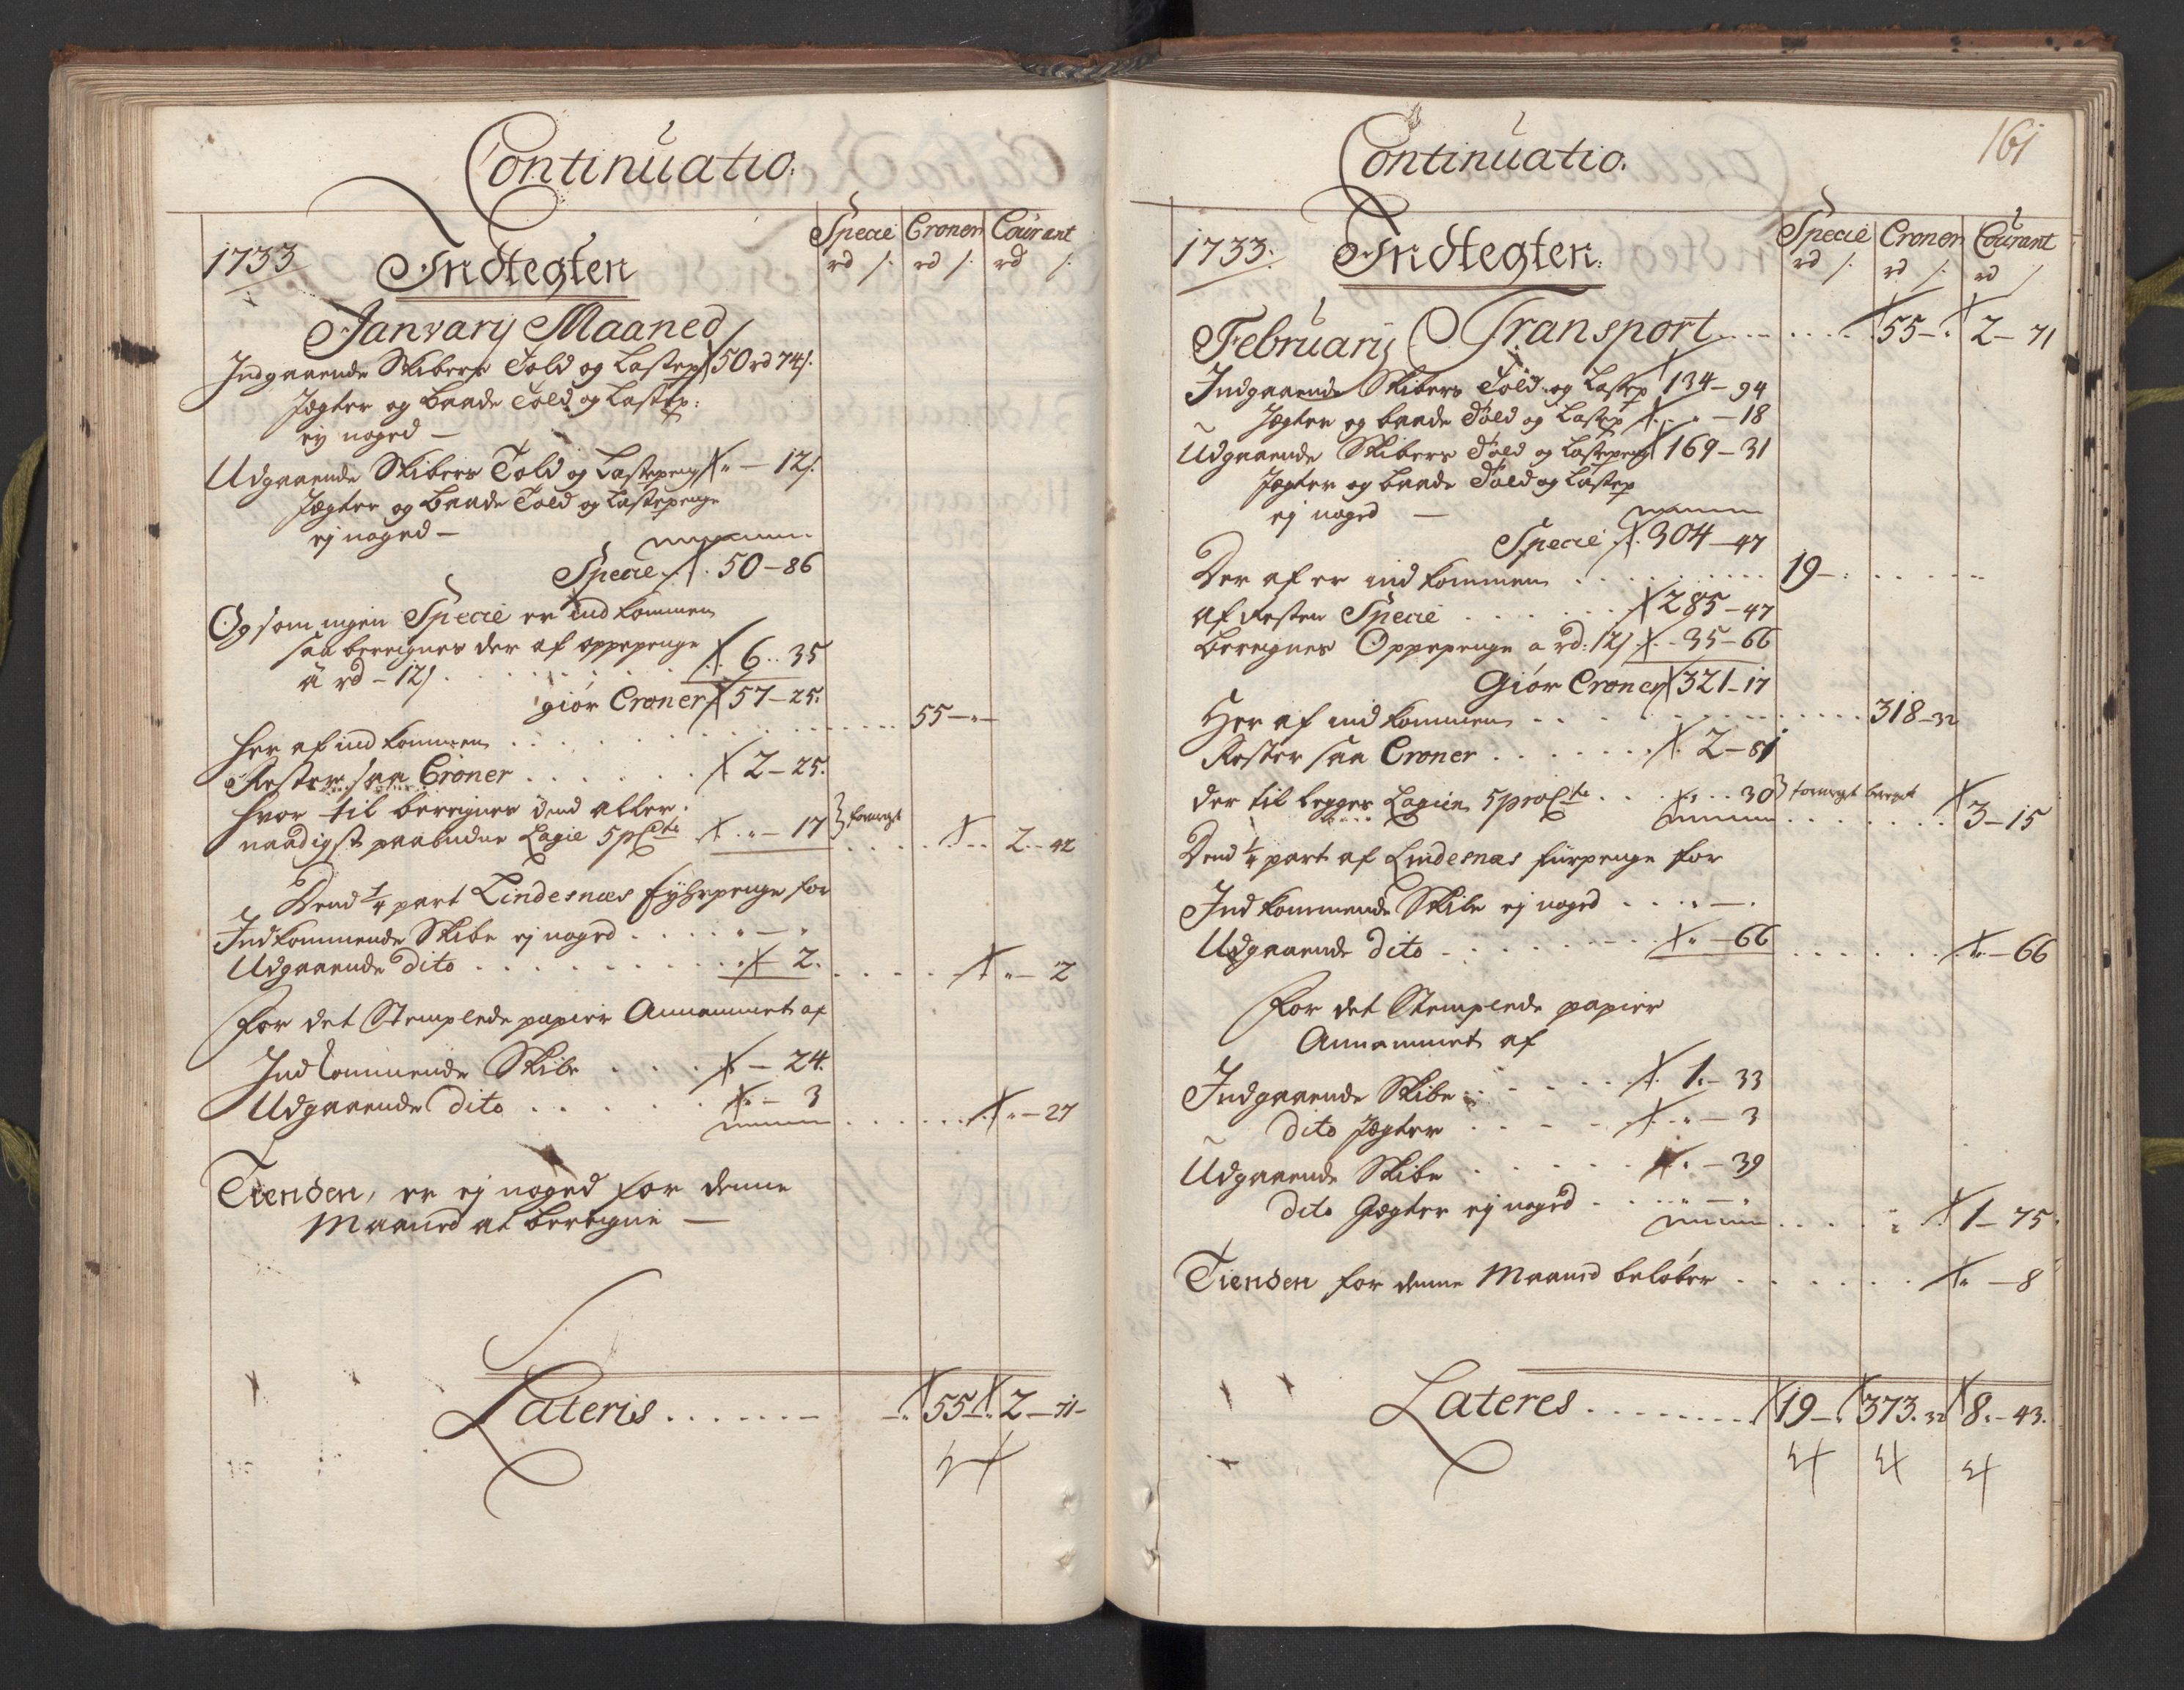 Continuatio.
1733
Indtegten
Specie Cronen Courant
rd /: rd /: rd /:
Janvarij Maaned
Indgaaende Skibers Told og Lastep 50 rd 74/:
Jægter og Baade Told og Lastep:
ej noged —
Udgaaende Skibers Told og Lastepeng " — 12/:
Jægter og Baade Told og Lastepenge
ej noged —
Specie 50 — 86
Og som ingen Specie er ind kommen
saa beregnes der af oppepenge
à rd — 12/ . . . . 6 . . 35
giör Croner 57 — 25.
her af ind kommen . . . . . . 55 — " —
Rester saa Croner . . . . . . 2 — 25.
hvor til beregnes dend aller.
naadigst paabudne Lagie 5 pCto " — 17 . . . 2 — 42
Dend 1/4 part Lindesnæs fyhrpenge for
Indkommende Skibe ej noged . . . . " — "
Udgaaende dito . . . . . . . . — 2. . . . . . " — 2
For det Stemplede papier Annammet af
Indkommende Skibe . . . . — 24.
Udgaaende dito . . . . . " — 3 . . . . . . " — 27
Tienden, er ej noged for denne
Maaned at beregne —
Lateris . . . . . . — 55 — " 2 — 71 —
161
Continuatio.
1733.
Indtegten.
Specie Cronen Courant
rd /: rd /: rd /
February Transport . . . . . . 55 — " 2 — 71
Indgaaende Skibers Told og Lastep 134 — 94
Jægter og baade Told og Lastep " — 18
Udgaaende Skibers Told og Lastepeng 169 — 31
Jægter og baade Told og Lastep
ej noged —
Specie . 304 — 47
Der af er ind kommen . . . . . . . . 19 — " . . . . .
af Resten Specie . . . . . . 285 — 47
beregnes Oppepenge a rd: 12/ . . 35 — 66
Giör Croner 321 — 17
Her af ind kommen . . . . . . . . . . . 318 — 32
Rester saa Croner . . . . . . . 2 — 81
der til legges Lagien 5 proCto . . . " . . 30 . . . . . . 3 — 15
Dend 1/4 part af Lindesnæs fürpenge for
Ind kommende Skibe ej noged . . . " — .
Udgaaende dito . . . . . . . " — 66 . . . . . . " — 66
For det Stemplede papier
Annammet af
Indgaaende Skibe . . . . . . 1 — 33
dito Jægter . . . . . " — 3
Udgaaende Skibe . . . . . " — 39
dito Jægter ej noged . . . . " — " . . . . 1 — 75
Tienden for denne Maaned beløber . . . . . . " — 8
Lateres . . . . . . . . 19 — " 373. 32 8 — 43.